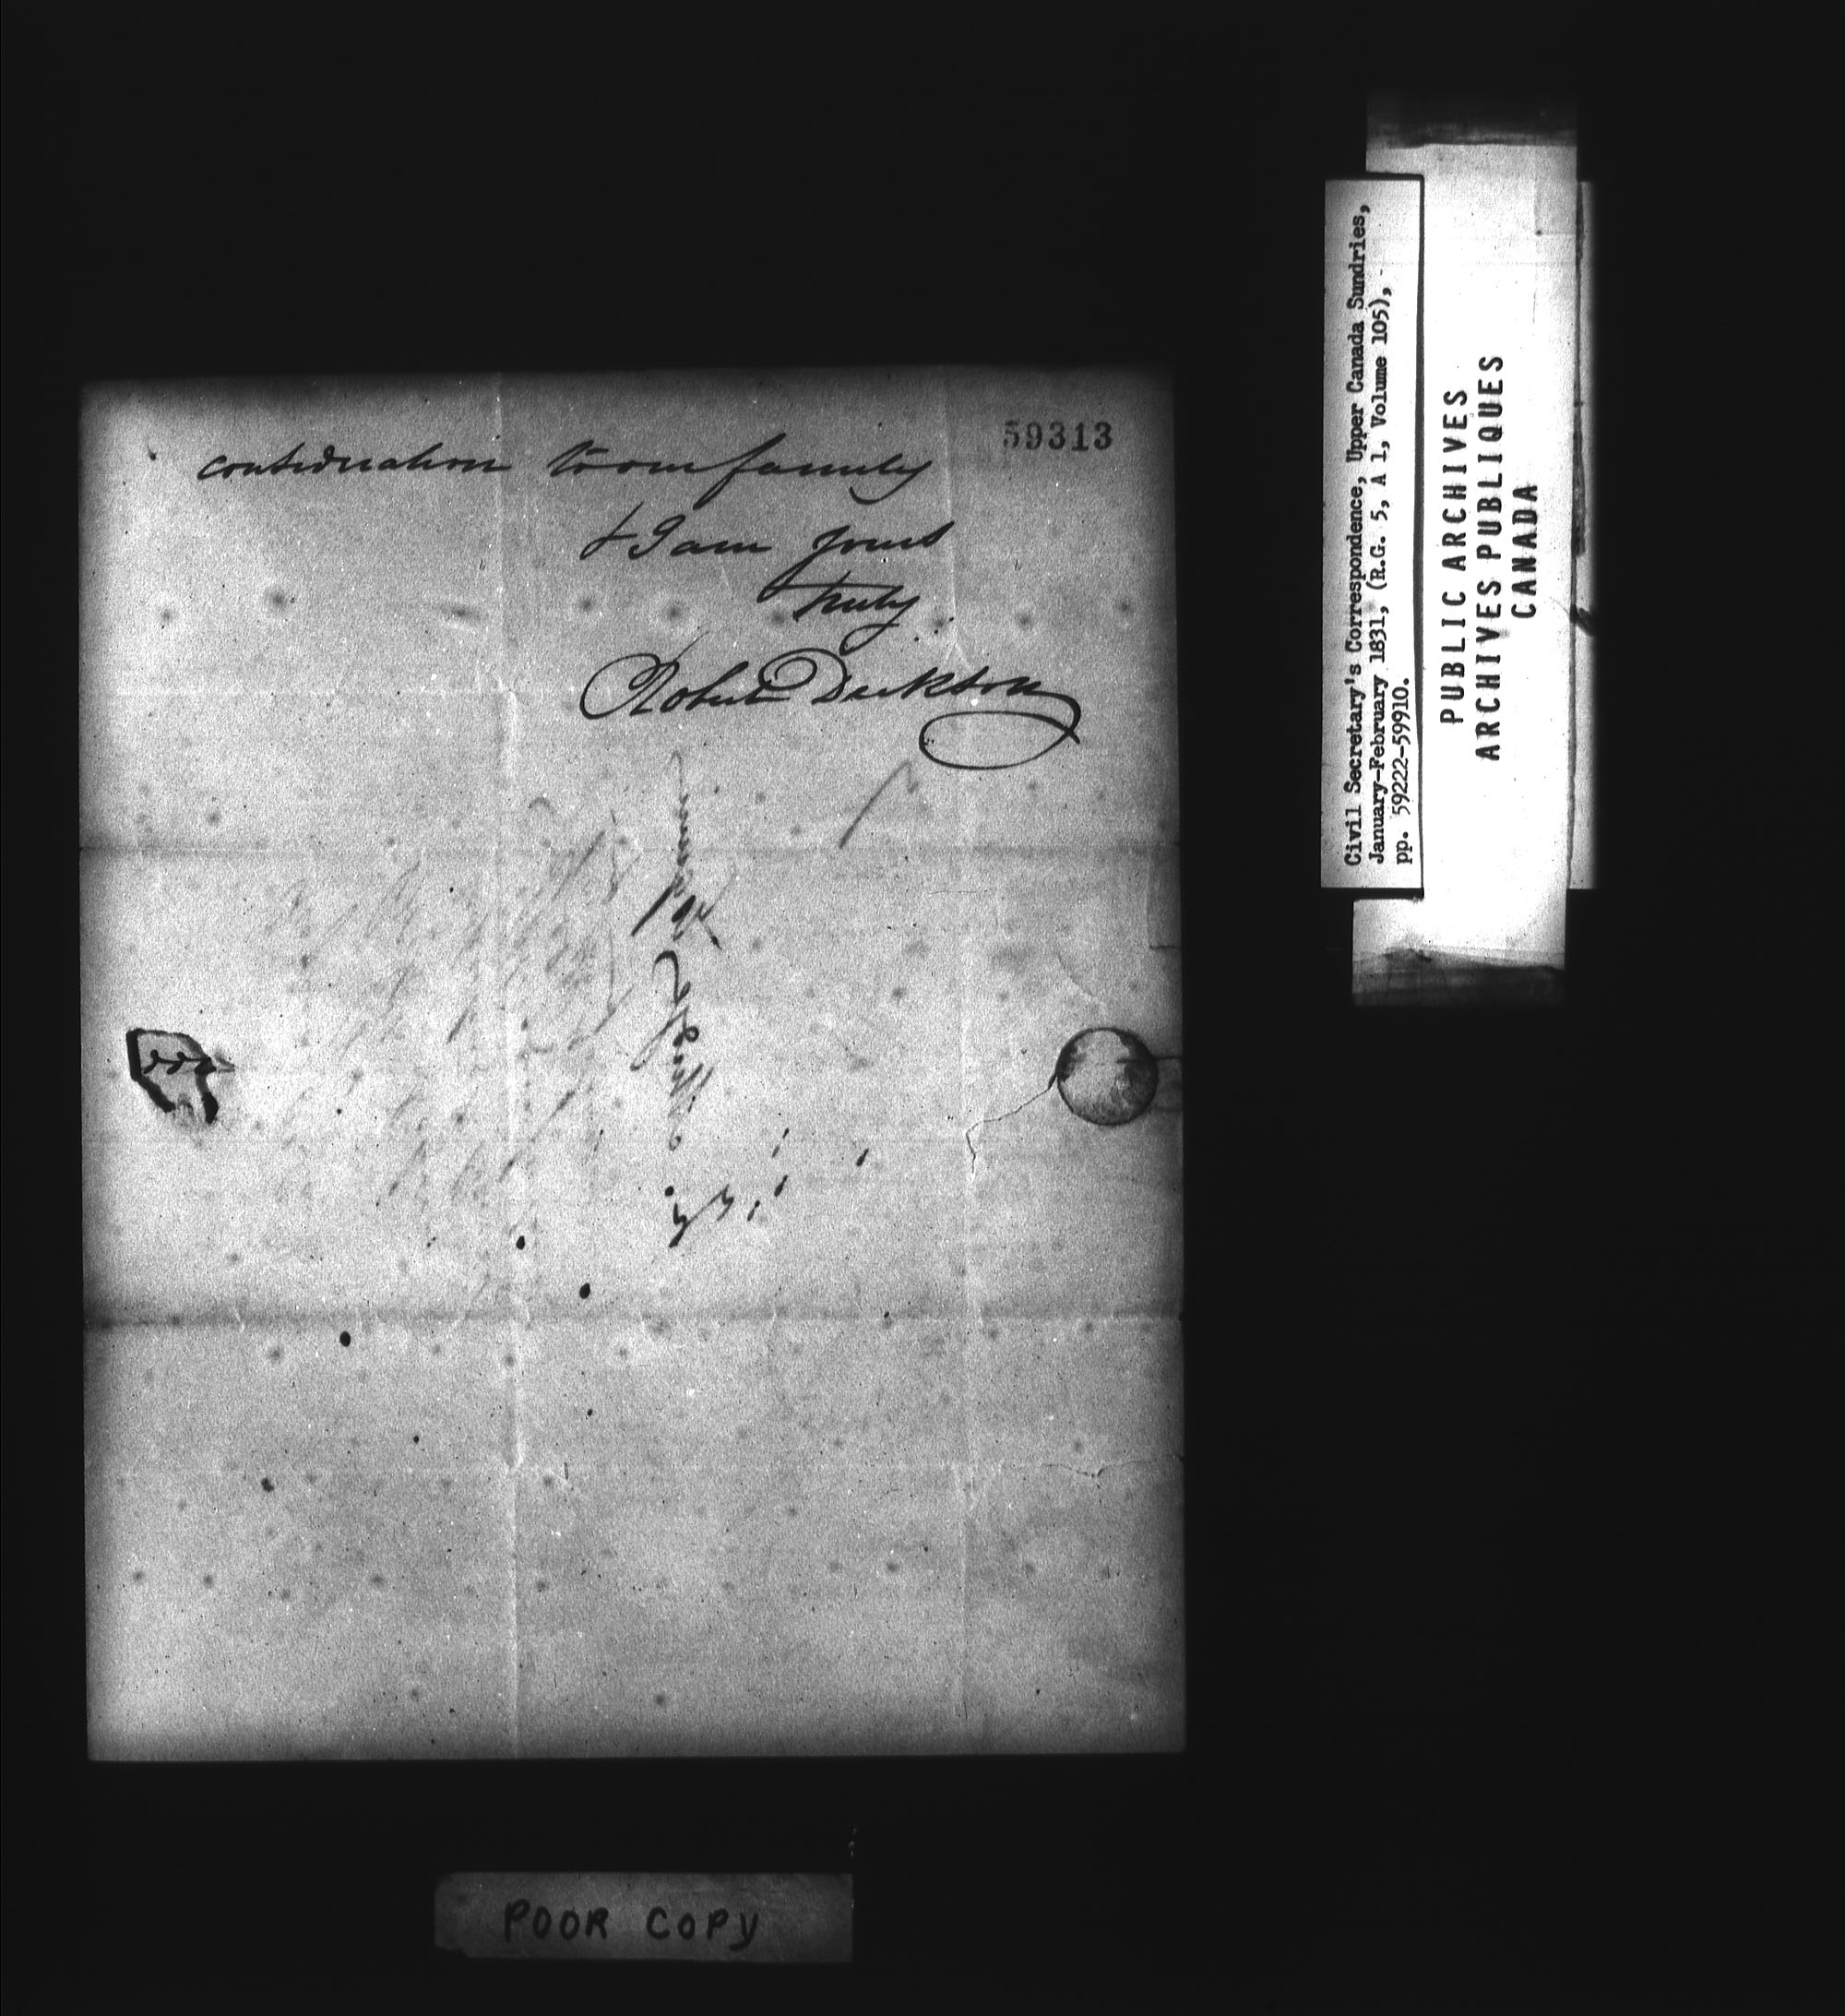 59313
consideration to our family
& I am yours
truly
Robert Dickson
Civil Secretary's Correspondence, Upper Canada Sundries,
January-February 1831, (R.G. 5, A 1, Volume 105),
pp. 59222-59910.
PUBLIC ARCHIVES
ARCHIVES PUBLIQUES
CANADA
POOR COPY